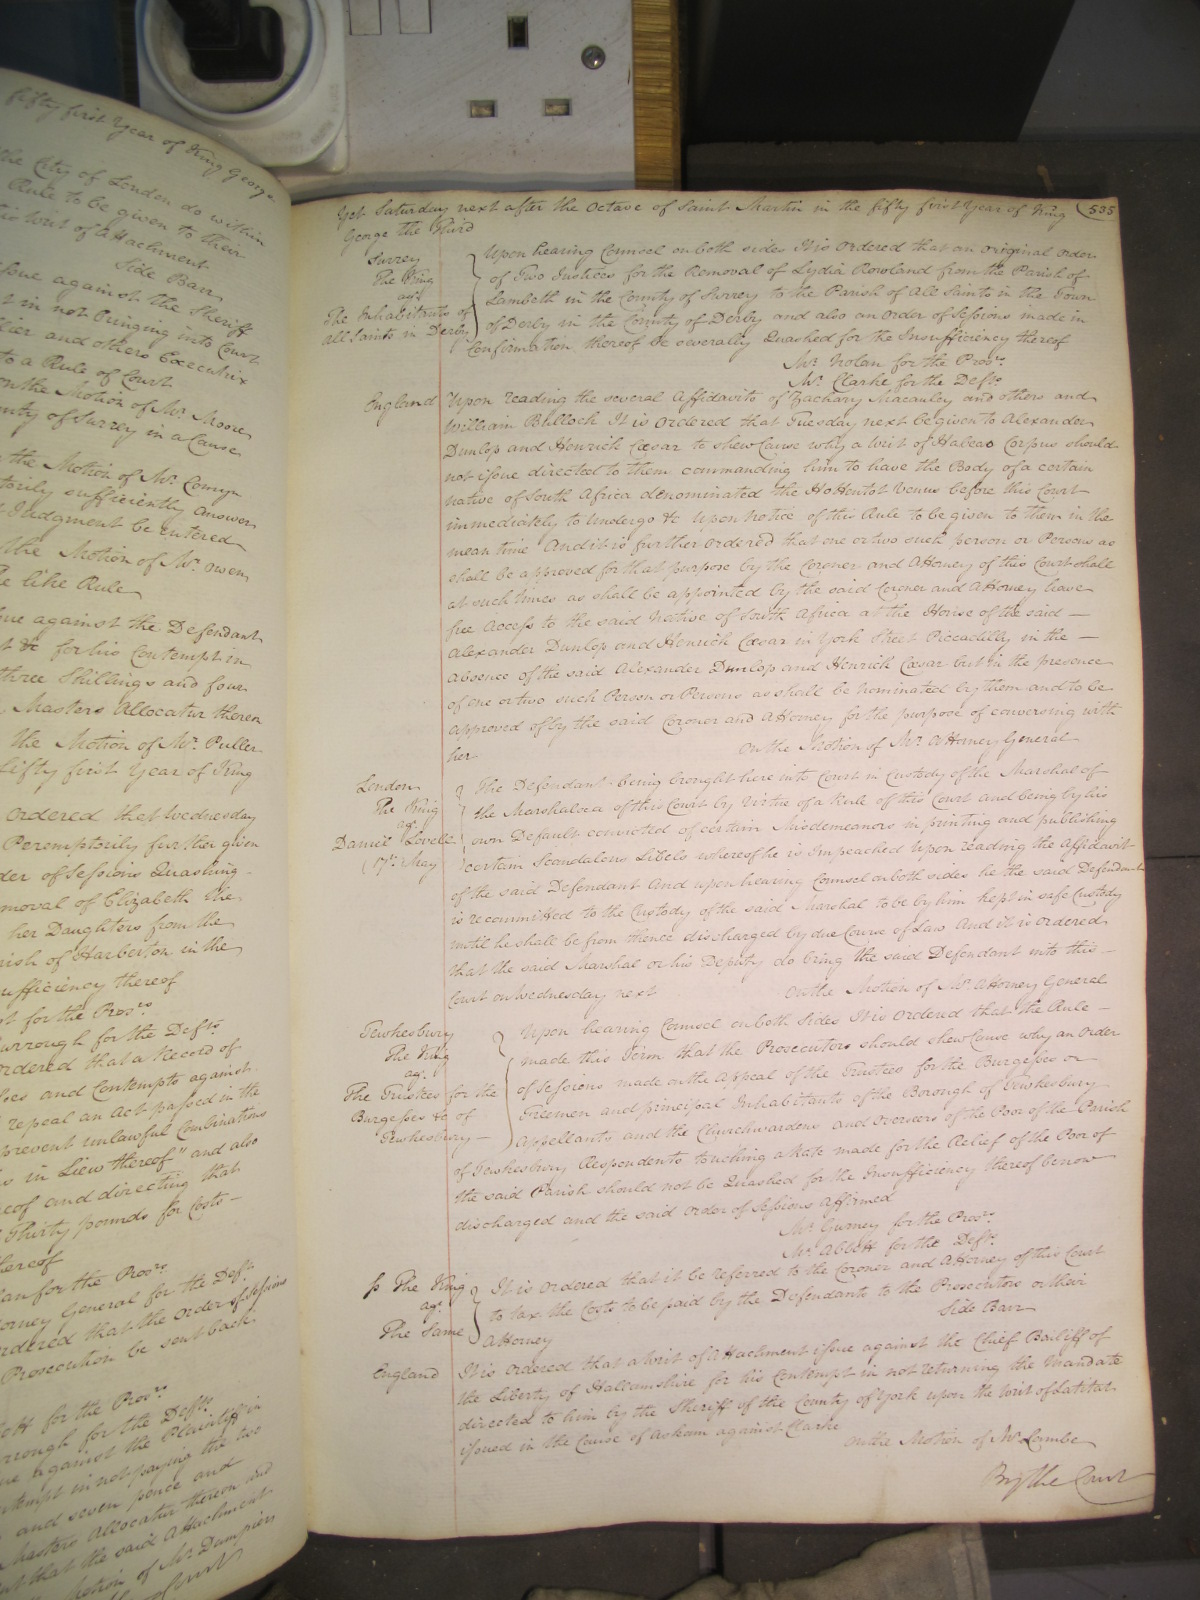 fifty first Year of King George
the City of London do within
Rule to be given to their
Writ of Attachment
Side Barr
issue against the Sheriff
t in not Bringing into Court
lier and others Executrix
to a Rule of Court
on the Motion of Mr. Moore
County of Surrey in a Cause
the Motion of Mr. Comyn
torily sufficiently answer
Judgment be entered
the Motion of Mr. Owen
like Rule
ue against the Defendant
t &c for his Contempt in
three Shillings and four
Masters Allocatur thereon
the Motion of Mr. Puller
fifty first Year of King
Ordered that Wednesday
Peremptorily further given
der of Sessions Quashing
moval of Elizabeth the
her Daughters from the
rish of Harberton in the
sufficiency thereof
for the Prosrs.
urrough for the Defts.
ordered that a Record of
ces and Contempts against
repeal an Act passed in the
prevent unlawful Combinations
s in Liew thereof" and also
eof and directing that
Thirty pounds for Costs
hereof
an for the Prosrs.
orney General for the Defts.
rdered that the Order of Sessions
Prosecution be sent back
ott for the Prosrs.
rrough for the Defts.
ue against the Plaintiff in
ntempt in not paying the two
and seven pence and
Masters Allocatur thereon and
that the said Attachment
Motion of Mr. Dampier
By the Court
Yet Saturday next after the Octave of Saint Martin in the fifty first Year of King 535
George the Third
Surrey
The King
agt.
The Inhabitants of
all Saints in Derby
Upon hearing Counsel on both sides It is Ordered that an original Order
of Two Justices for the Removal of Lydia Rowland from the Parish of
Lambeth in the County of Surrey to the Parish of All Saints in the Town
of Derby in the County of Derby and also an Order of Sessions made in
Confirmation thereof be severally Quashed for the Insufficiency thereof
Mr. Nolan for the Prosrs.
Mr. Clarke for the Defts.
England Upon reading the several Affidavits of Zachary Macauley and others and
William Bullock It is Ordered that Tuesday next be given to Alexander
Dunlop and Henrick Cæsar to shew Cause why a Writ of Habeas Corpus should
not issue directed to them commanding him to have the Body of a certain
native of South Africa denominated the Hottentot Venus before this Court
immediately to undergo &c Upon Notice of this Rule to be given to them in the
mean time And it is further Ordered that one or two such person or Persons as
shall be approved for that purpose by the Coroner and Attorney of this Court shall
at such times as shall be appointed by the said Coroner and Attorney have
free Access to the said Native of South Africa at the House of the said
Alexander Dunlop and Henrick Cæsar in York Street Piccadilly in the
absence of the said Alexander Dunlop and Henrick Cæsar but in the presence
of one or two such Person or Persons as shall be nominated by them and to be
approved of by the said Coroner and Attorney for the purpose of conversing with
her On the Motion of Mr. Attorney General
London
The King
agt.
Daniel Lovell
17th May
The Defendant being brought here into Court in Custody of the Marshal of
the Marshalsea of this Court by Virtue of a Rule of this Court and being by his
own Default convicted of certain Misdemeanors in printing and publishing
certain Scandalous Libels whereof he is Impeached Upon reading the Affidavit
of the said Defendant And upon hearing Counsel on both sides he the said Defendant
is recommitted to the Custody of the said Marshal to be by him kept in safe Custody
until he shall be from thence discharged by due Course of Law And it is Ordered
that the said Marshal or his Deputy do bring the said Defendant into this
Court on Wednesday next On the Motion of Mr. Attorney General
Tewkesbury
The King
agt.
The Trustees for the
Burgesses &c of
Tewkesbury
Upon hearing Counsel on both Sides It is Ordered that the Rule
made this Term that the Prosecutors should shew Cause why an Order
of Sessions made on the Appeal of the Trustees for the Burgesses or
Freemen and principal Inhabitants of the Borough of Tewkesbury
Appellants and the Churchwardens and Overseers of the Poor of the Parish
of Tewkesbury Respondents touching a Rate made for the Relief of the Poor of
the said Parish should not be Quashed for the Insufficiency thereof be now
discharged and the said Order of Sessions Affirmed
Mr. Gurney for the Prosrs.
Mr. Abbott for the Defts.
The King
agt.
The Same
It is Ordered that it be referred to the Coroner and Attorney of this Court
to tax the Costs to be paid by the Defendants to the Prosecutors or their
Attorney Side Barr
England It is Ordered that a Writ of Attachment issue against the Chief Bailiff of
the Liberty of Hallamshire for his Contempt in not returning the Mandate
directed to him by the Sheriff of the County of York upon the Writ of Latitat
issued in the Cause of Askam against Clarke
On the Motion of Mr. Lambe
By the Court